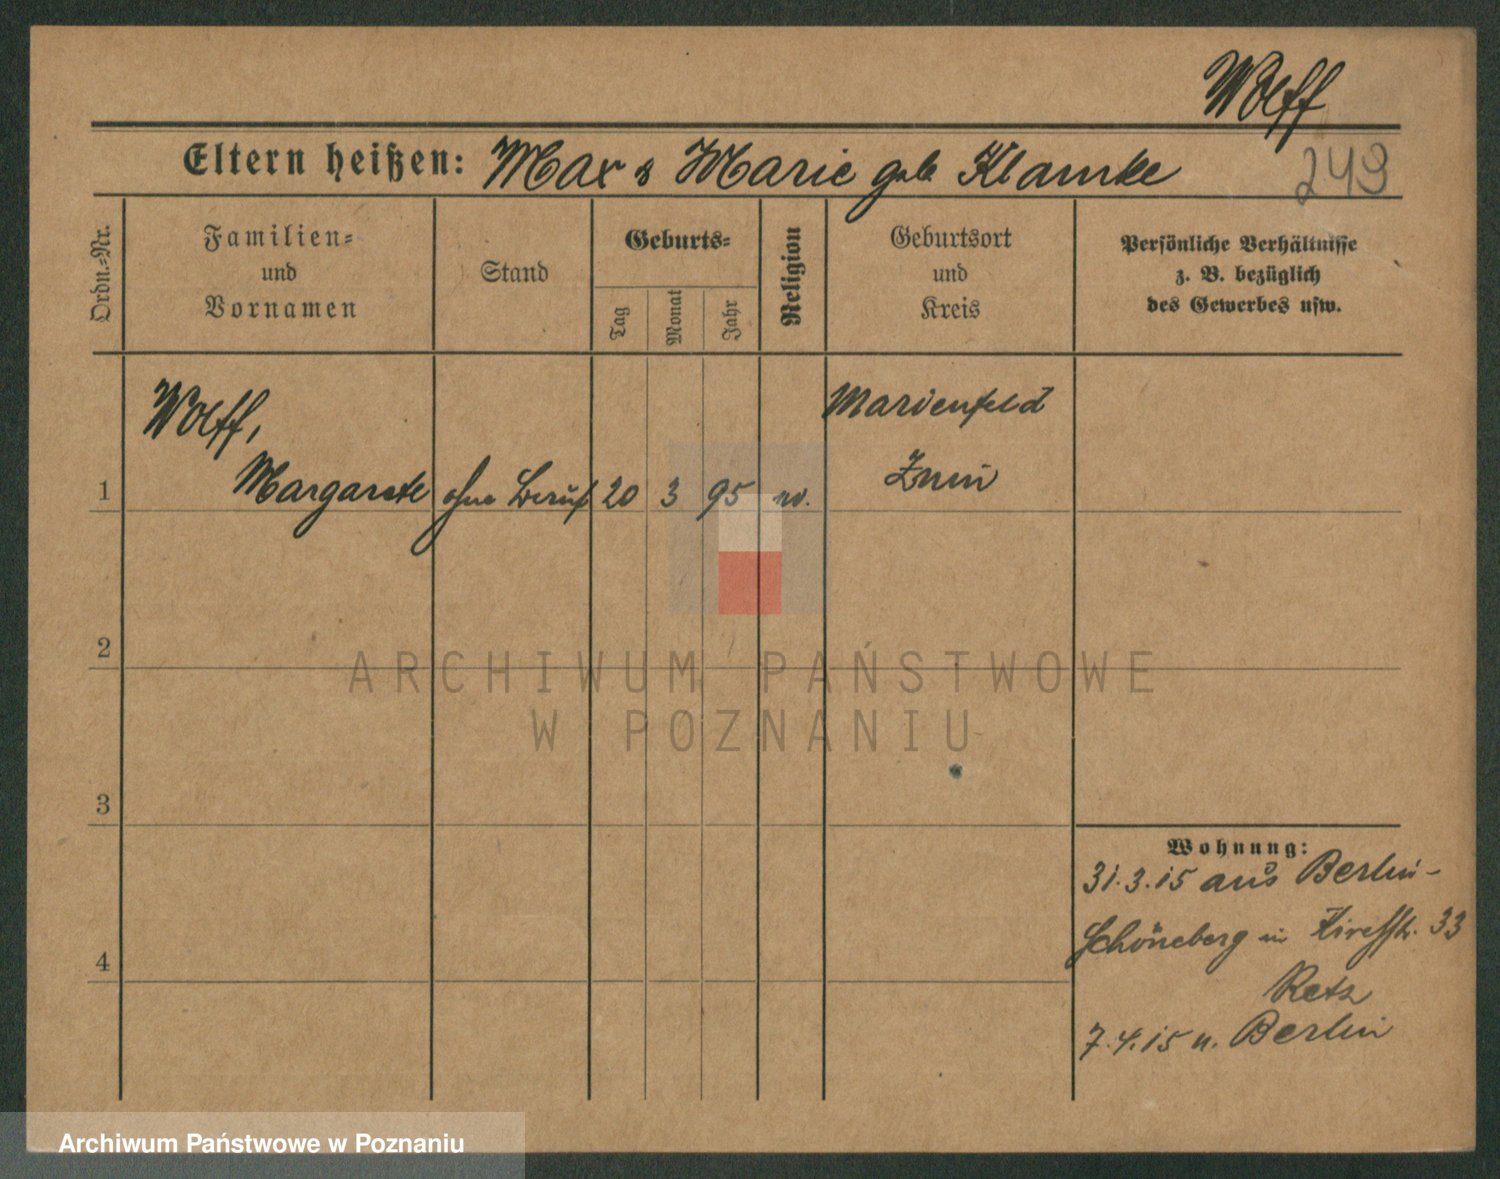 Wolff
Eltern heißen: Max & Marie geb Klamke
249
Ordn.=Nr.
Familien=
und
Vornamen
Stand
Geburts=
Tag
Monat
Jahr
Religion
Geburtsort
und
Kreis
Persönliche Verhältnisse
z. B. bezüglich
des Gewerbes usw.
Wolff,
Marienfeld
1 Margarete ohne Beruf 20 3 95 ev.
Znin
2
3
4
ARCHIWUM PAŃSTWOWE
W POZNANIU
Wohnung:
31.3.15 aus Berlin-
Schöneberg in 33
7.4.15 n. Berlin
Archiwum Państwowe w Poznaniu